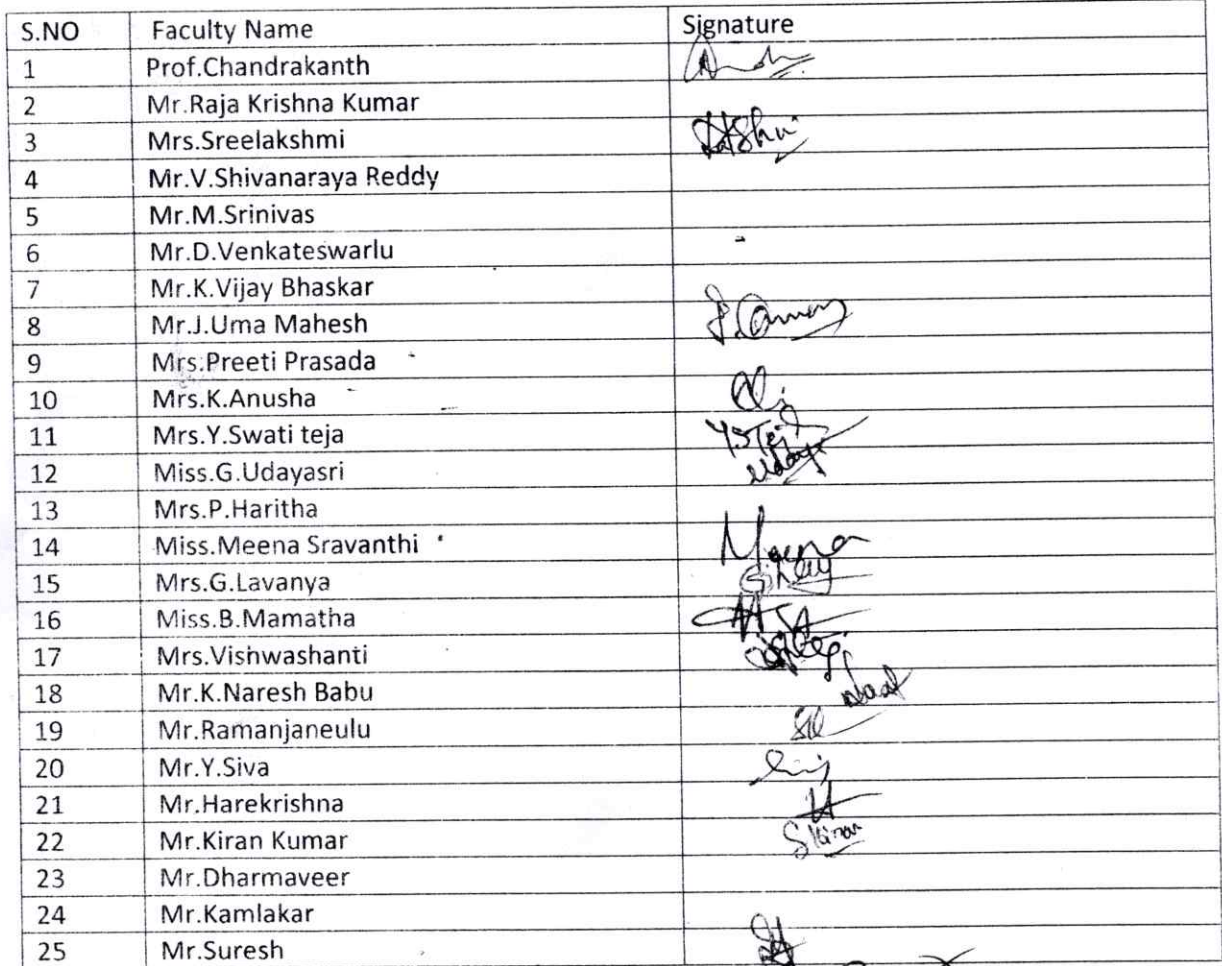 S.NO Faculty Name Signature
1 Prof.Chandrakanth
2 Mr.Raja Krishna Kumar
3 Mrs.Sreelakshmi
4 Mr.V.Shivanaraya Reddy
5 Mr.M.Srinivas
6 Mr.D.Venkateswarlu
7 Mr.K.Vijay Bhaskar
8 Mr.J.Uma Mahesh
9 Mrs.Preeti Prasada
10 Mrs.K.Anusha
11 Mrs.Y.Swati teja Y.S Teja
12 Miss.G.Udayasri Uday
13 Mrs.P.Haritha
14 Miss.Meena Sravanthi Meena
15 Mrs.G.Lavanya
16 Miss.B.Mamatha
17 Mrs.Vishwashanti
18 Mr.K.Naresh Babu
19 Mr.Ramanjaneulu
20 Mr.Y.Siva
21 Mr.Harekrishna
22 Mr.Kiran Kumar S Kiran
23 Mr.Dharmaveer
24 Mr.Kamlakar
25 Mr.Suresh